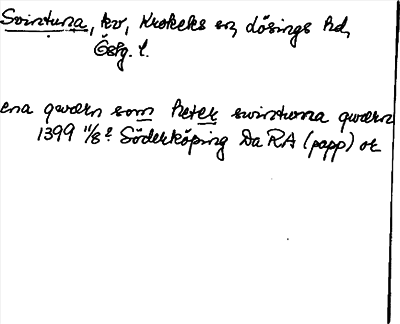 Svintuna, kv, Krokeks sn, Lösings hd,
Ögfg. l.
ena qwærn som heter swintuna qwærn
1399 11/8? Söderköping Da RA (papp) or